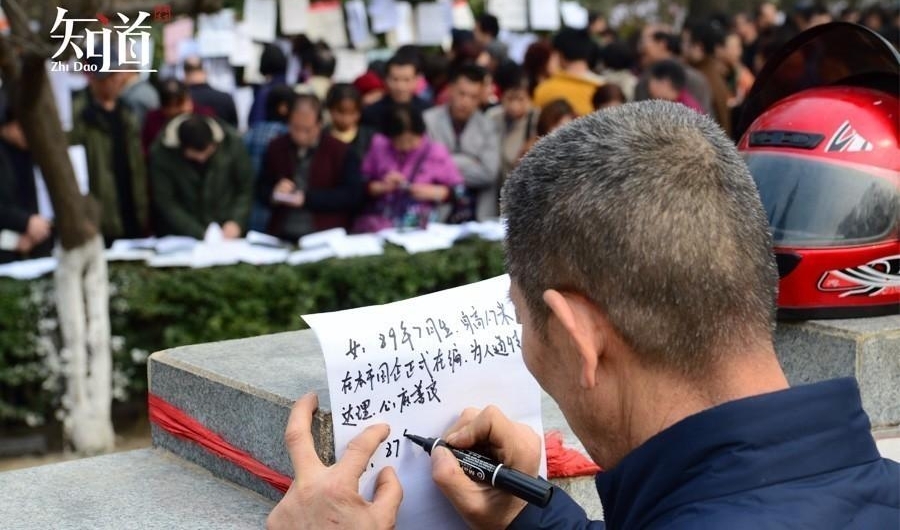 知道
Zhi Dao
女：89年7月生，身高1.7米
在本市国企正式在编，为人通情
达理，心底善良
37